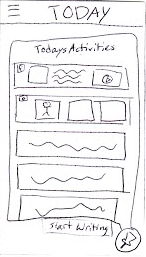 TODAY
Todays Activities
Start Writing